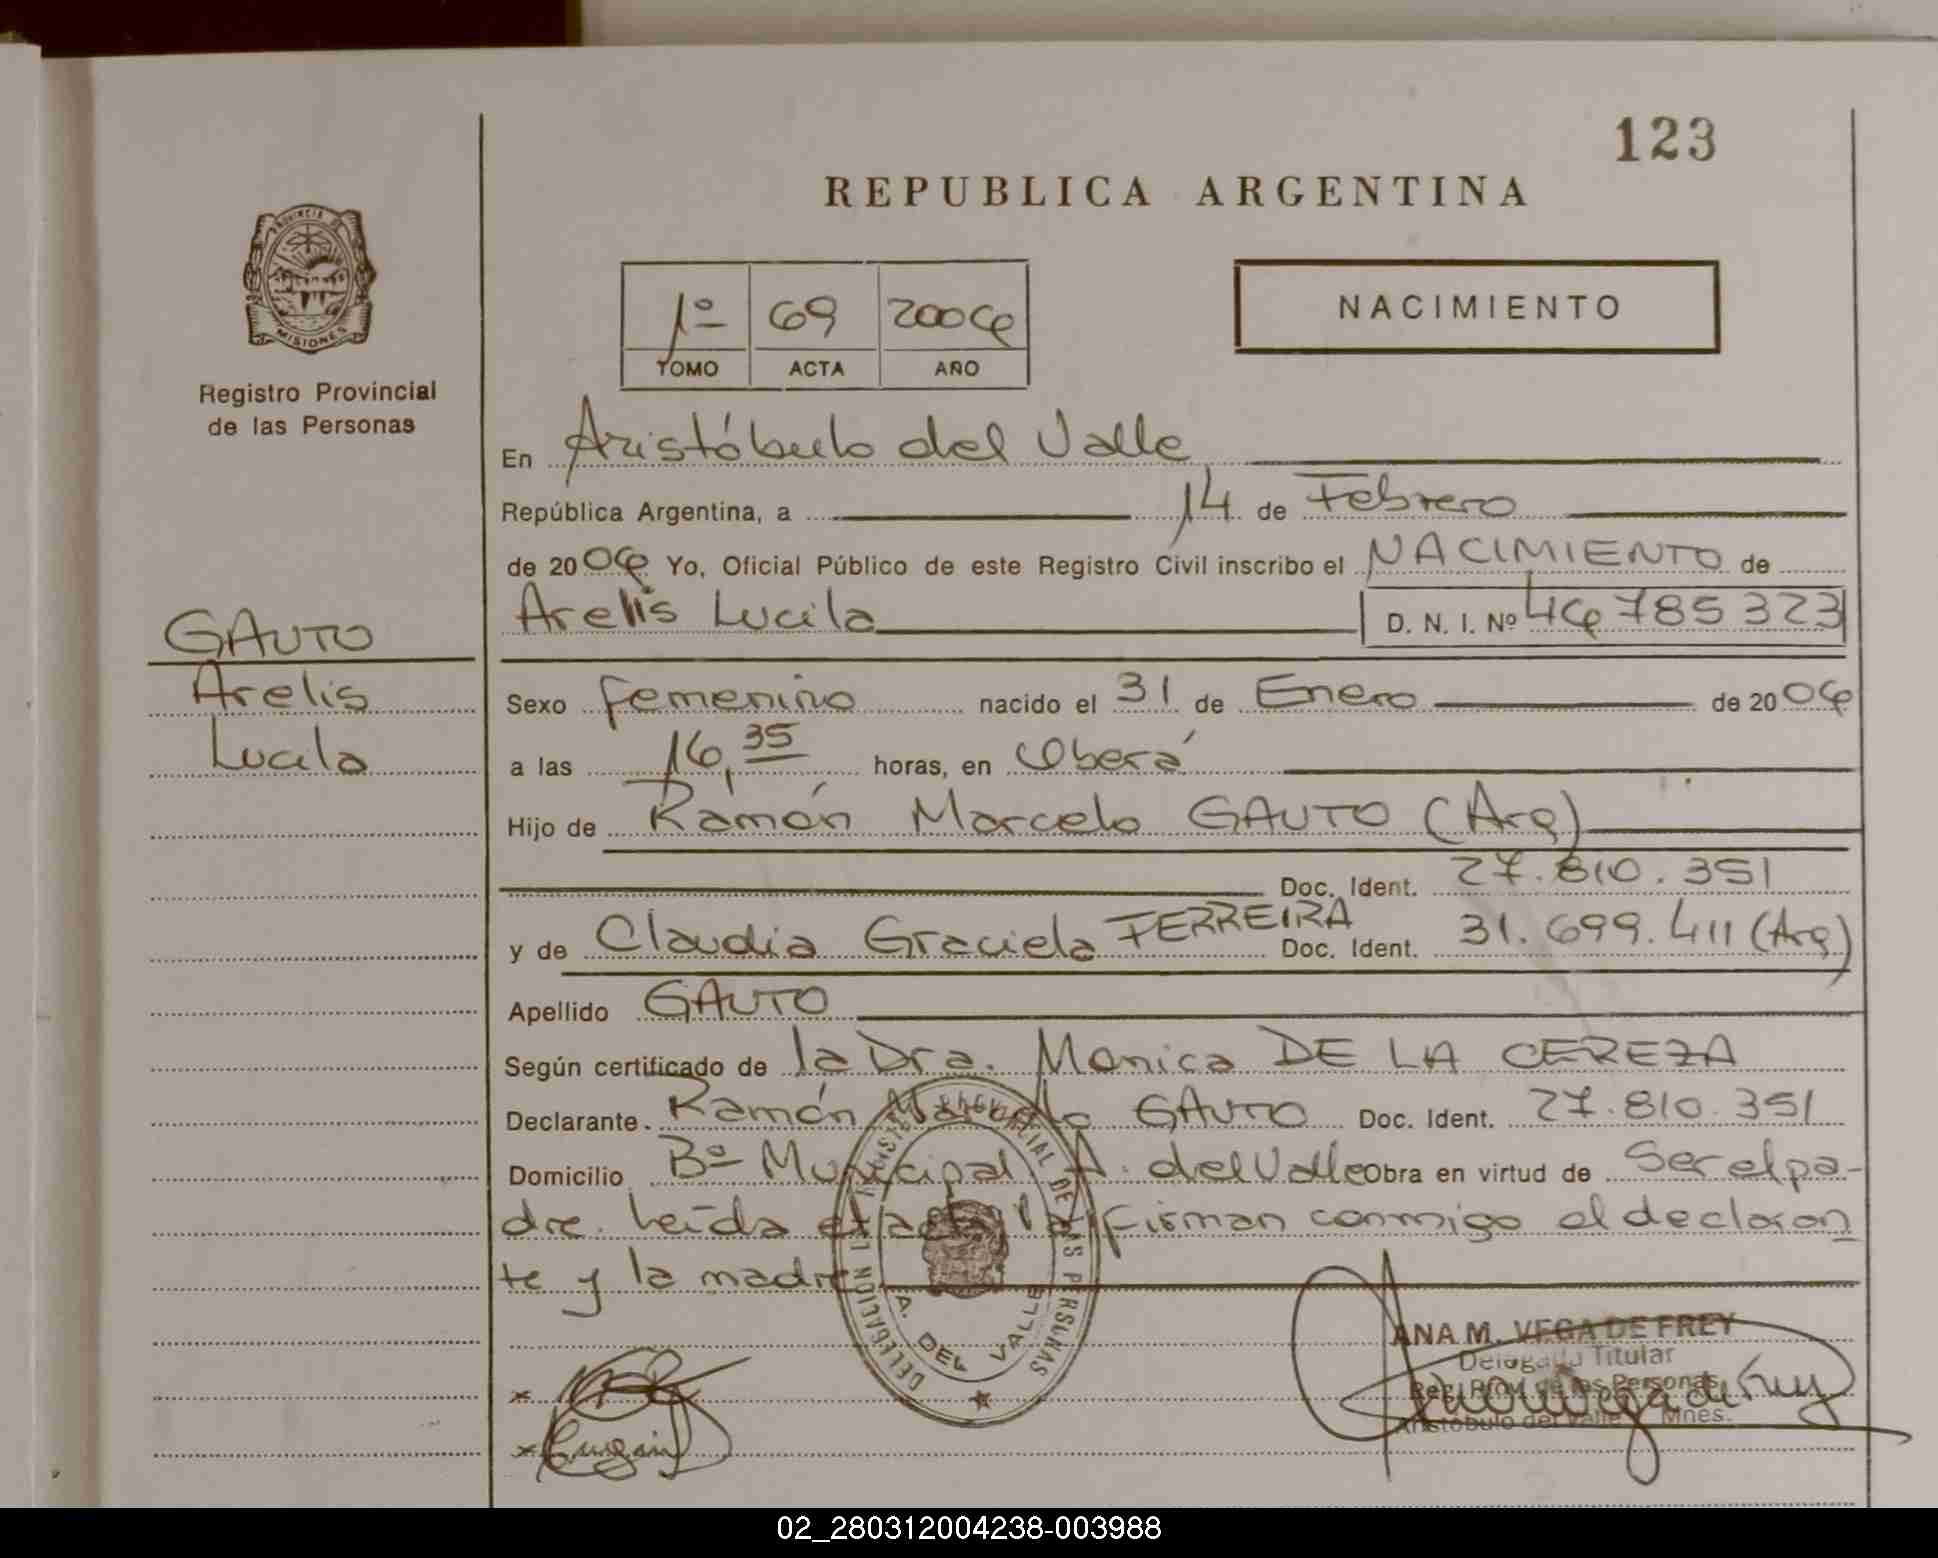 123
REPUBLICA ARGENTINA
PROVINCIA DE
MISIONES
Registro Provincial
de las Personas
1º 69 2006
TOMO ACTA AÑO
NACIMIENTO
En Aristóbulo del Valle
República Argentina, a 14 de Febrero
de 2006 Yo, Oficial Público de este Registro Civil inscribo el NACIMIENTO de
Arelis Lucila D. N. I. Nº 46785323
GAUTO
Arelis
Lucila
Sexo femenino nacido el 31 de Enero de 2006
a las 16,35 horas, en Oberá
Hijo de Ramón Marcelo GAUTO (Arg)
Doc. Ident. 27.810.351
y de Claudia Graciela FERREIRA Doc. Ident. 31.699.411 (Arg.)
Apellido GAUTO
Según certificado de la Dra. Monica DE LA CEREZA
Declarante. Ramón Marcelo GAUTO Doc. Ident. 27.810.351
Domicilio Bº Municipal A. del Valle Obra en virtud de Ser el pa-
dre. Leída el acta la firman conmigo el declaran
te y la madre
DELEGACION
REGISTRO PROVINCIAL DE LAS PERSONAS
A. DEL VALLE
ANA M. VEGA DE FREY
Delegada Titular
Reg. Prov. de las Personas
Aristóbulo del Valle Mnes.
02_280312004238-003988